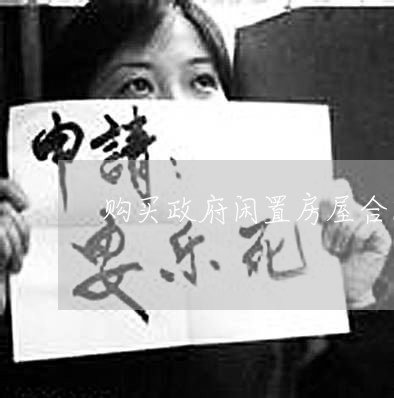 申請：
购买政府闲置房屋合
安乐死